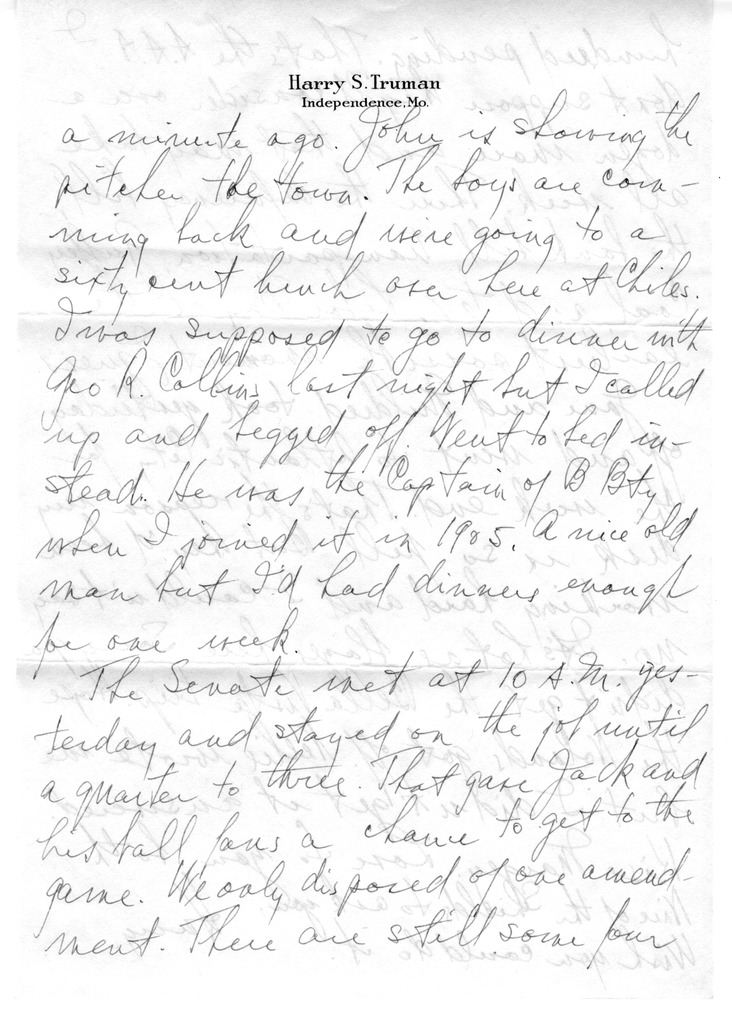 Harry S. Truman
Independence, Mo.
a minute ago. John is showing the
pitcher the town. The boys are com-
ming back and we're going to a
sixty cent lunch over here at Childs.
I was supposed to go to dinner with
Geo R. Collins last night but I called
up and begged off. Went to bed in-
stead. He was the Captain of B Bty
when I joined it in 1905. A nice old
man but I'd had dinners enough
for one week.
The Senate met at 10 A.M. yes-
terday and stayed on the job until
a quarter to three. That gave Jack and
his ball fans a chance to get to the
game. We only disposed of one amend-
ment. There are still some four